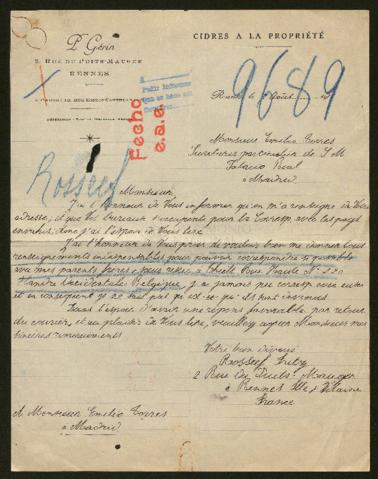 P. Gérin
2, RUE DU PUITS-MAUGER
RENNES
CIDRES A LA PROPRIÉTÉ
Fecho
9689
Rosseel
Monsieur Emilio Torres
Secrétaire particulier de S M
Palacio Real
à Madrid
Monsieur,
J'ai l'honneur de Vous informer qu'on m'a renseigné de Votre
adresse, et que Vos bureaux s'occupent pour la Corresp. avec les pays
envahis, dont j'ai l'espoir de Vous lire
J'ai l'honneur de Vous prier de vouloir bien me donner tous
renseignements indispensables pour pouvoir correspondre si possible
avec mes parents frères & sœurs
Flandre Occidentale Belgique, j'ai jamais pu corresp avec eux
et en conséquent je ne sait pas qu'est-ce qu'ils sont devenus
Dans l'espoir d'avoir une réponse favorable par retour
du courrier, et au plaisir de Vous lire, veuillez agréer Monsieur mes
sincères remerciements
Votre bien dévoué
Rosseel Fritz
2 Rue du Puits-Mauger
à Rennes Ille & Vilaine
France
A Monsieur Emilio Torres
à Madrid